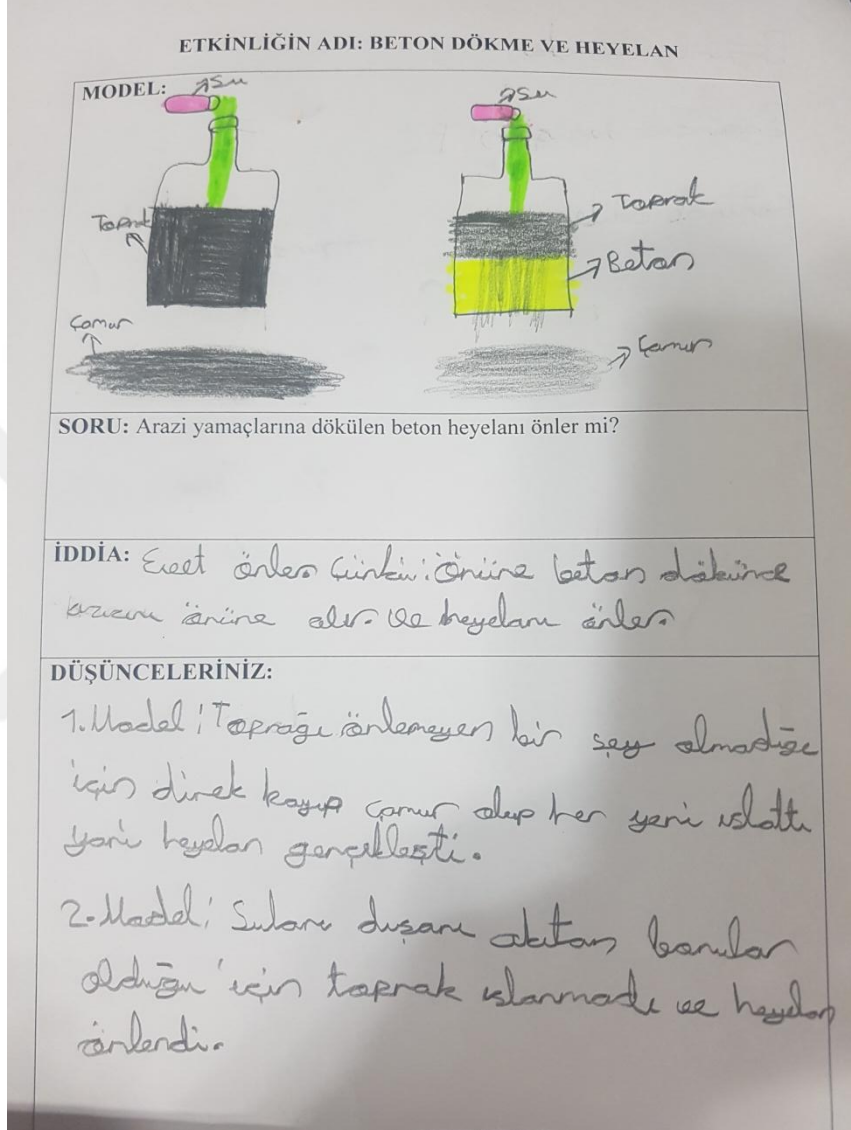 ETKİNLİĞİN ADI: BETON DÖKME VE HEYELAN
MODEL:
Su
Su
Toprak
Toprak
Beton
Çamur
Çamur
SORU: Arazi yamaçlarına dökülen beton heyelanı önler mi?
İDDİA: Evet önler Çünkü: Önüne beton dökünce
önüne alır. ve heyelanı önler
DÜŞÜNCELERİNİZ:
1. Model; Toprağı önlemeyen bir şey olmadığı
için direk kayıp çamur olup her yeri ıslattı
yani heyelan gerçekleşti.
2. Model; Suları dışarı akıtan borular
olduğu için toprak ıslanmadı ve heyelan
önlendi.